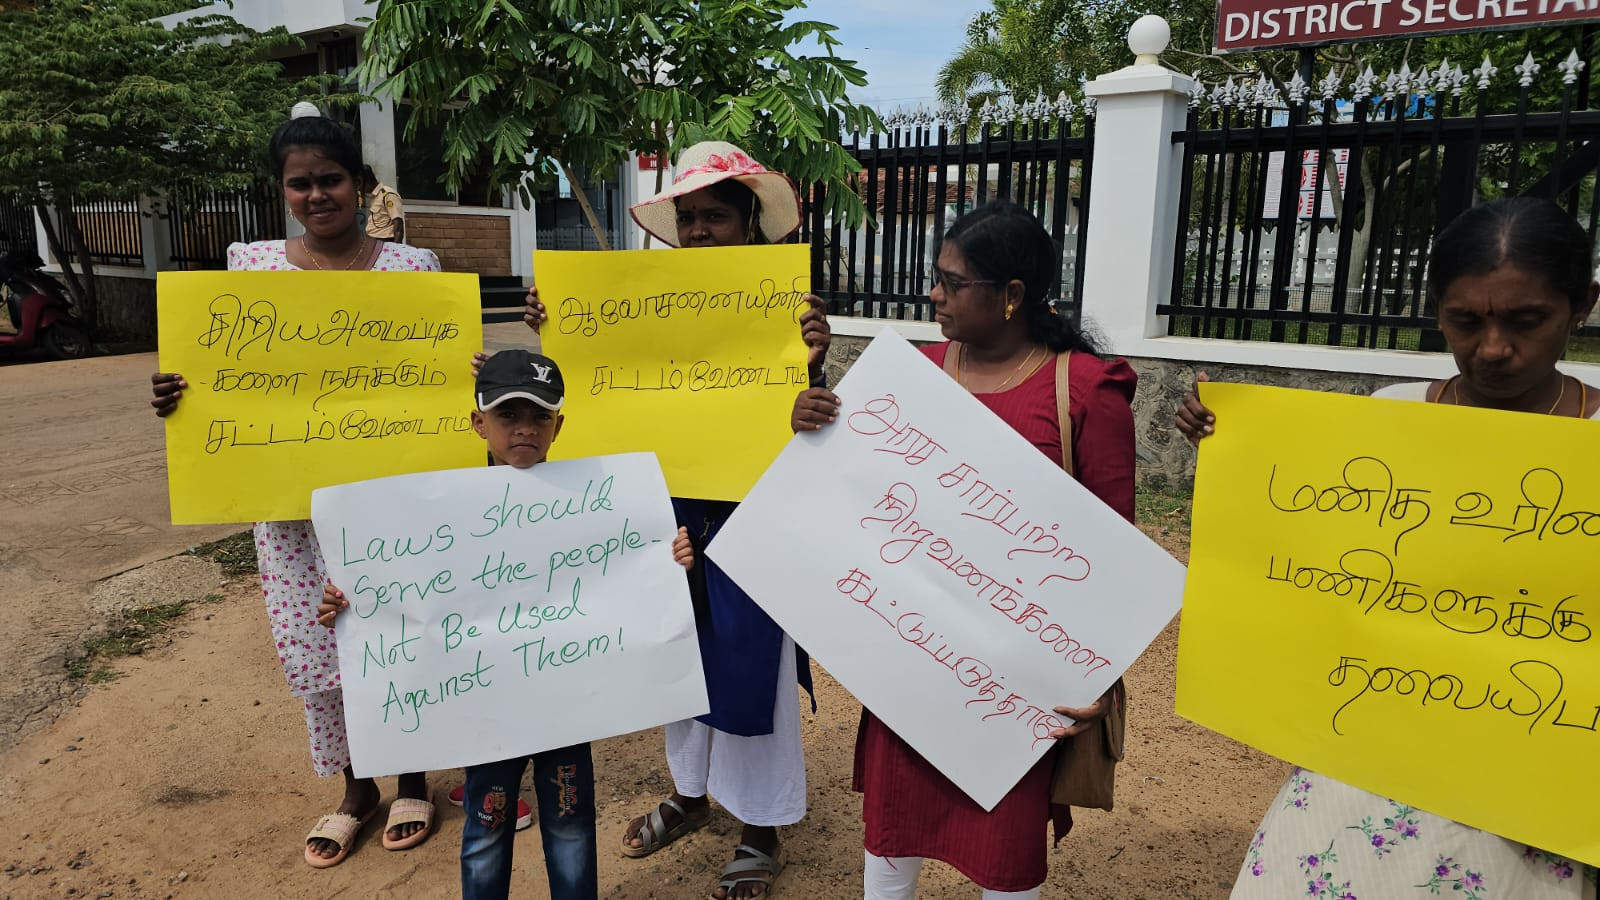 DISTRICT SECRETA
சிறிய அமைப்புக்
-களை நசுக்கும்
சட்டம் வேண்டாம்
ஆலோசனையின்றி
சட்டம் வேண்டாம்
Laws should
Serve the people-
Not Be Used
Against Them!
அரச சார்பற்ற
நிறுவனங்களை
கட்டுப்படுத்தாதே
மனித உரிமை
பணிகளுக்கு
தலையிட